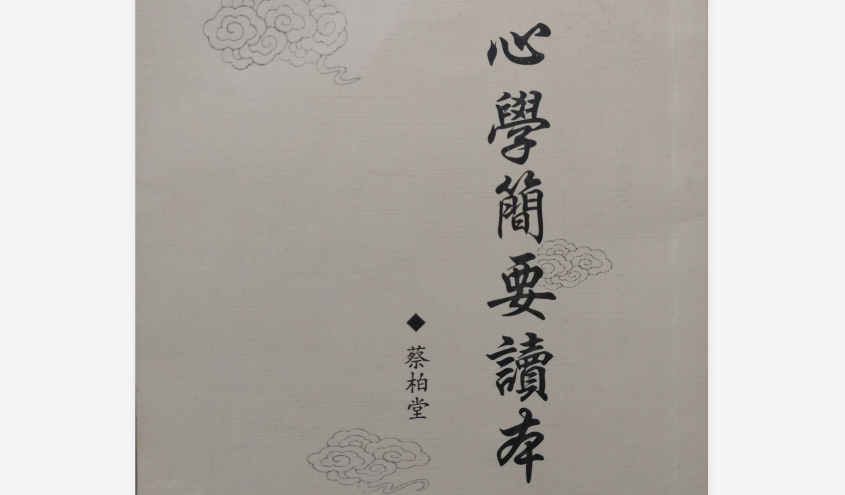 心學簡要讀本
◆蔡柏堂